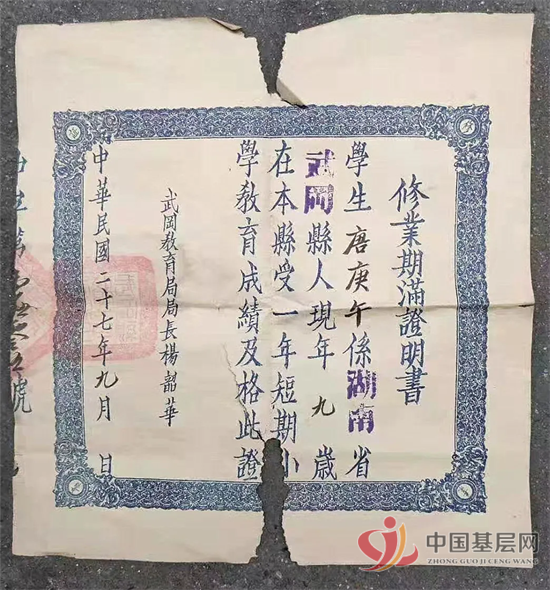 修業期滿證明書
學生唐庚午係湖南省
武岡縣人現年九歲
在本縣受一年短期小
學教育成績及格此證
武岡教育局局長楊韶華
中華民國二十七年九月 日
第 號
中国基层网
ZHONG GUO JI CENG WANG